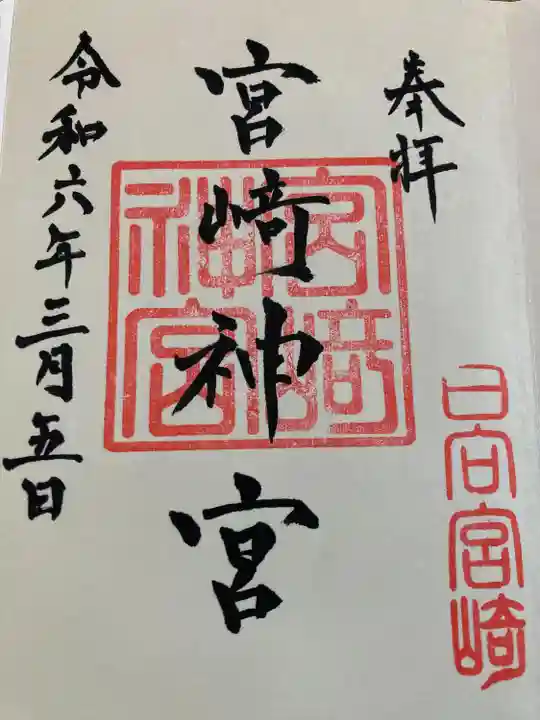 奉拝
日向宮崎
宮崎神宮
宮﨑神宮
令和六年三月五日